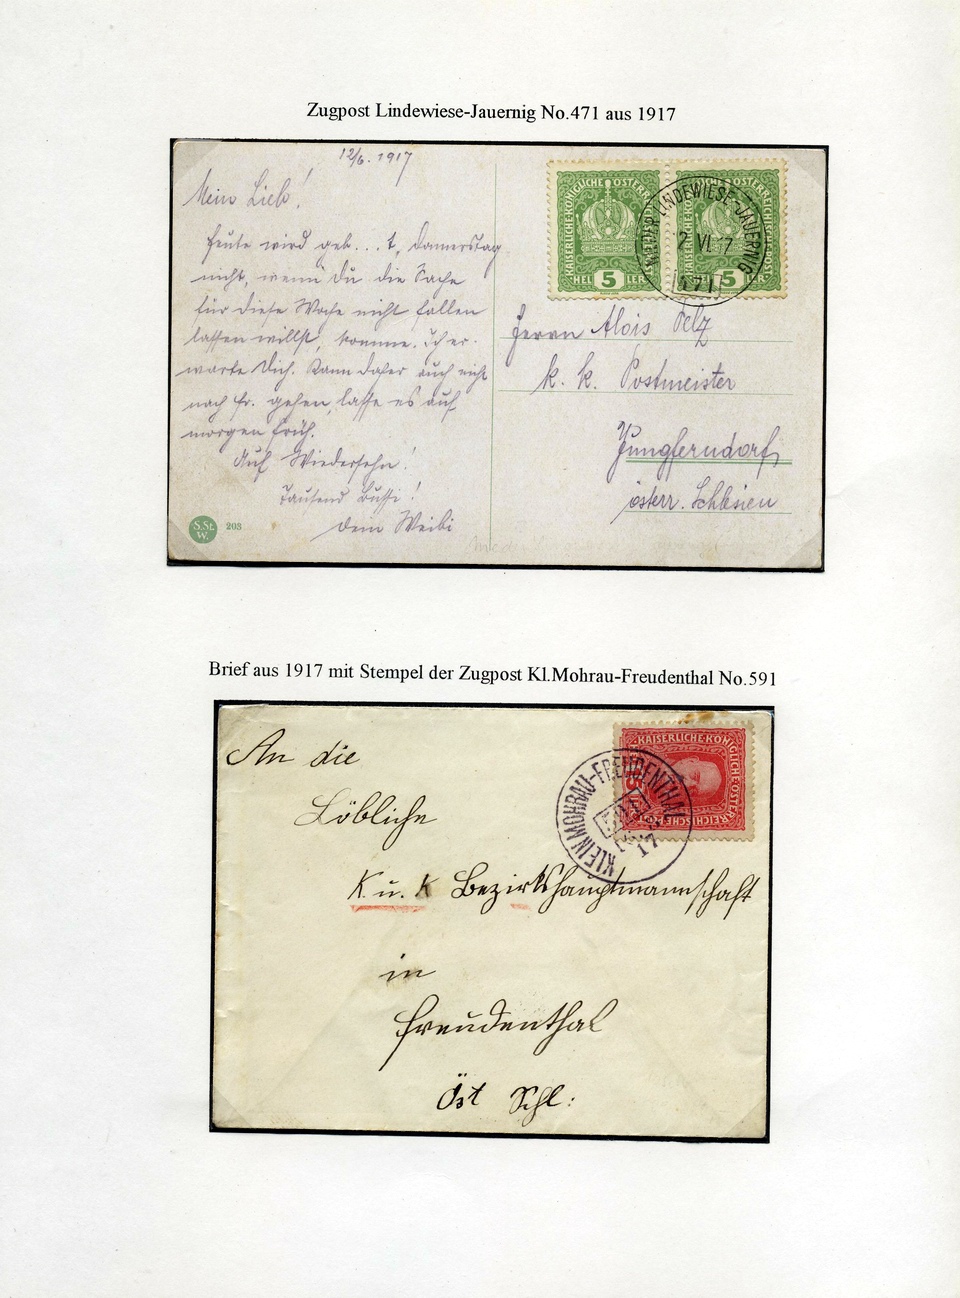 Zugpost Lindewiese-Jauernig No.471 aus 1917
12/6. 1917
Mein Lieb!
Heute wird geb...t, Donnerstag
nicht, wenn Du die Sache
für diese Woche nicht fallen
lassen willst, komme. Ich er-
warte Dich. Kann daher auch nicht
nach Fr. gehen, lasse es auf
morgen früh.
Auf Wiedersehn!
Tausend Bussi!
Dein Weibi
S.St.
W.
203
KAISERLICHE KÖNIGLICHE ÖSTERREICHISCHE POST
5 HELLER 5
LINDEWIESE-JAUERNIG
VI 17
471
Herrn Alois Pelz
k. k. Postmeister
Jungferndorf
österr. Schlesien
Brief aus 1917 mit Stempel der Zugpost Kl.Mohrau-Freudenthal No.591
KAISERLICHE KÖNIGLICHE ÖSTERREICHISCHE
KLEIN MOHRAU-FREUDENTHAL
17
An die
Löbliche
K u. K Bezirkshauptmannschaft
in
Freudenthal
Öst Schl: